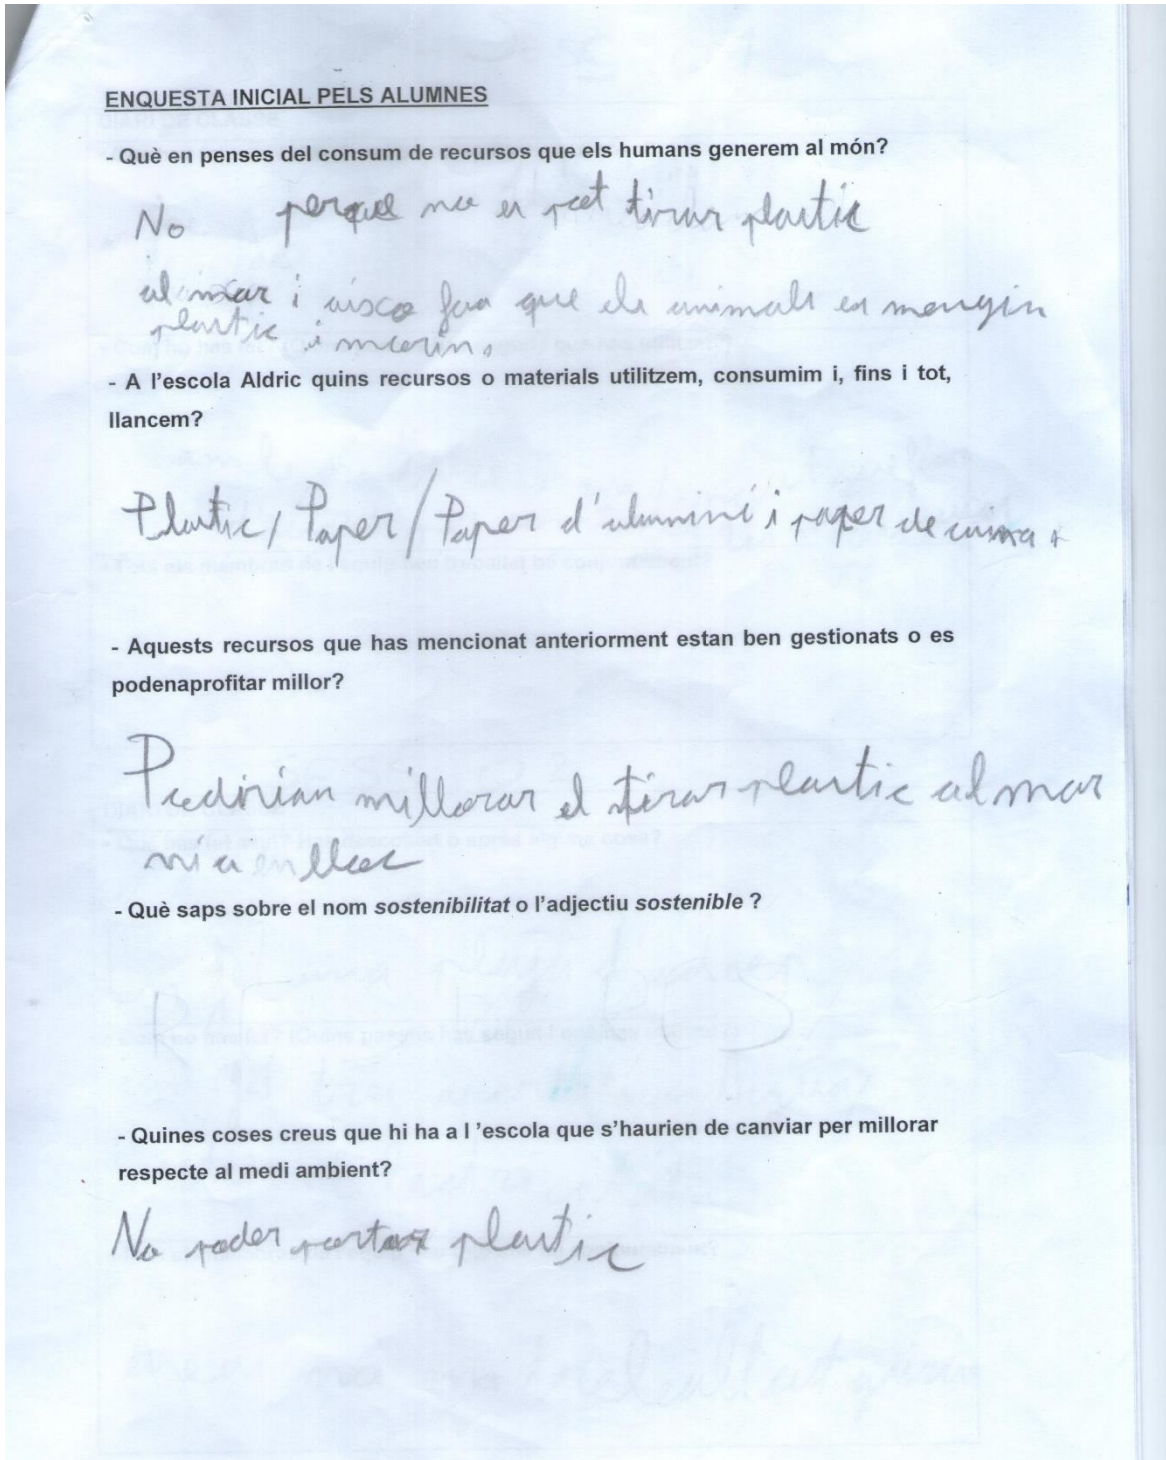 ENQUESTA INICIAL PELS ALUMNES
- Què en penses del consum de recursos que els humans generem al món?
No perque no es pot tirar plastic
al mar i aiso faa que els animals es mengin
plastic i morin.
- A l'escola Aldric quins recursos o materials utilitzem, consumim i, fins i tot,
llancem?
Plastic, Paper/Paper d'alumini i paper de cuina
- Aquests recursos que has mencionat anteriorment estan ben gestionats o es
podenaprofitar millor?
Podirian millorar el tirar plastic al mar
ni a en lloc
- Què saps sobre el nom sostenibilitat o l'adjectiu sostenible ?
- Quines coses creus que hi ha a l 'escola que s'haurien de canviar per millorar
respecte al medi ambient?
No poder portar plastic